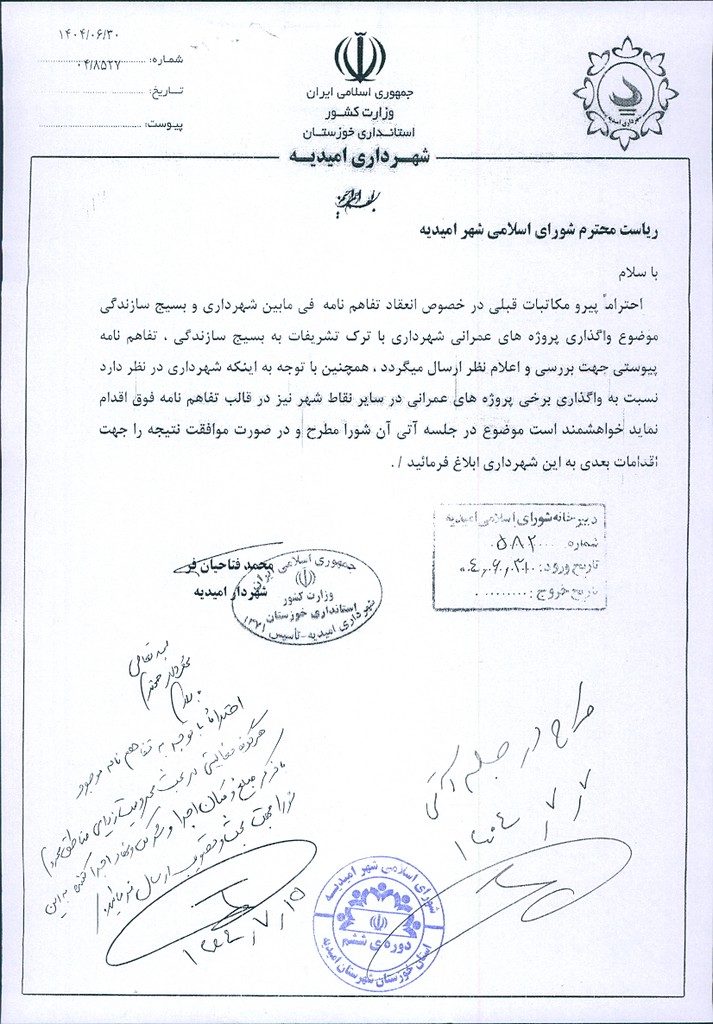 ۱۴۰۴/۰۶/۳۰
شماره:
۰۴/۸۵۲۷
تاریخ:
پیوست:
جمهوری اسلامی ایران
وزارت کشور
استانداری خوزستان
شهرداری امیدیه
ریاست محترم شورای اسلامی شهر امیدیه
با سلام
احتراماً پیرو مکاتبات قبلی در خصوص انعقاد تفاهم نامه فی مابین شهرداری و بسیج سازندگی
موضوع واگذاری پروژه های عمرانی شهرداری با ترک تشریفات به بسیج سازندگی ، تفاهم نامه
پیوستی جهت بررسی و اعلام نظر ارسال میگردد ، همچنین با توجه به اینکه شهرداری در نظر دارد
نسبت به واگذاری برخی پروژه های عمرانی در سایر نقاط شهر نیز در قالب تفاهم نامه فوق اقدام
نماید خواهشمند است موضوع در جلسه آتی آن شورا مطرح و در صورت موافقت نتیجه را جهت
اقدامات بعدی به این شهرداری ابلاغ فرمائید /.
دبیرخانه شورای اسلامی امیدیه
شماره ۵۸۲
تاریخ ورود:
تاریخ خروج:
محمد فتاحیان فر
شهردار امیدیه
جمهوری اسلامی ایران
وزارت کشور
استانداری خوزستان
شهرداری امیدیه-تأسیس ۱۳۷۱
طرح در جلسه آتی
۱۴۰۴/۷/۷
بسمه تعالی
احتراماً با توجه به تفاهم نامه موجود
هرگونه فعالیتی
۱۴۰۴/۷/۱۵
شورای اسلامی شهر امیدیه
دوره‌ی ششم
استان خوزستان شهرستان امیدیه